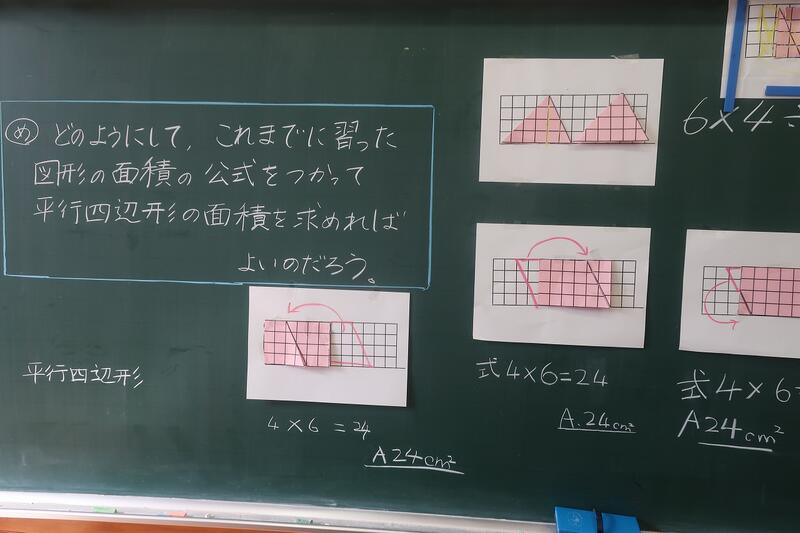 め どのようにして、これまでに習った
図形の面積の公式をつかって
平行四辺形の面積を求めれば
よいのだろう。
平行四辺形
4×6=24
A24cm²
式4×6=24
A.24cm²
式4×6=
A24cm²
6×4÷